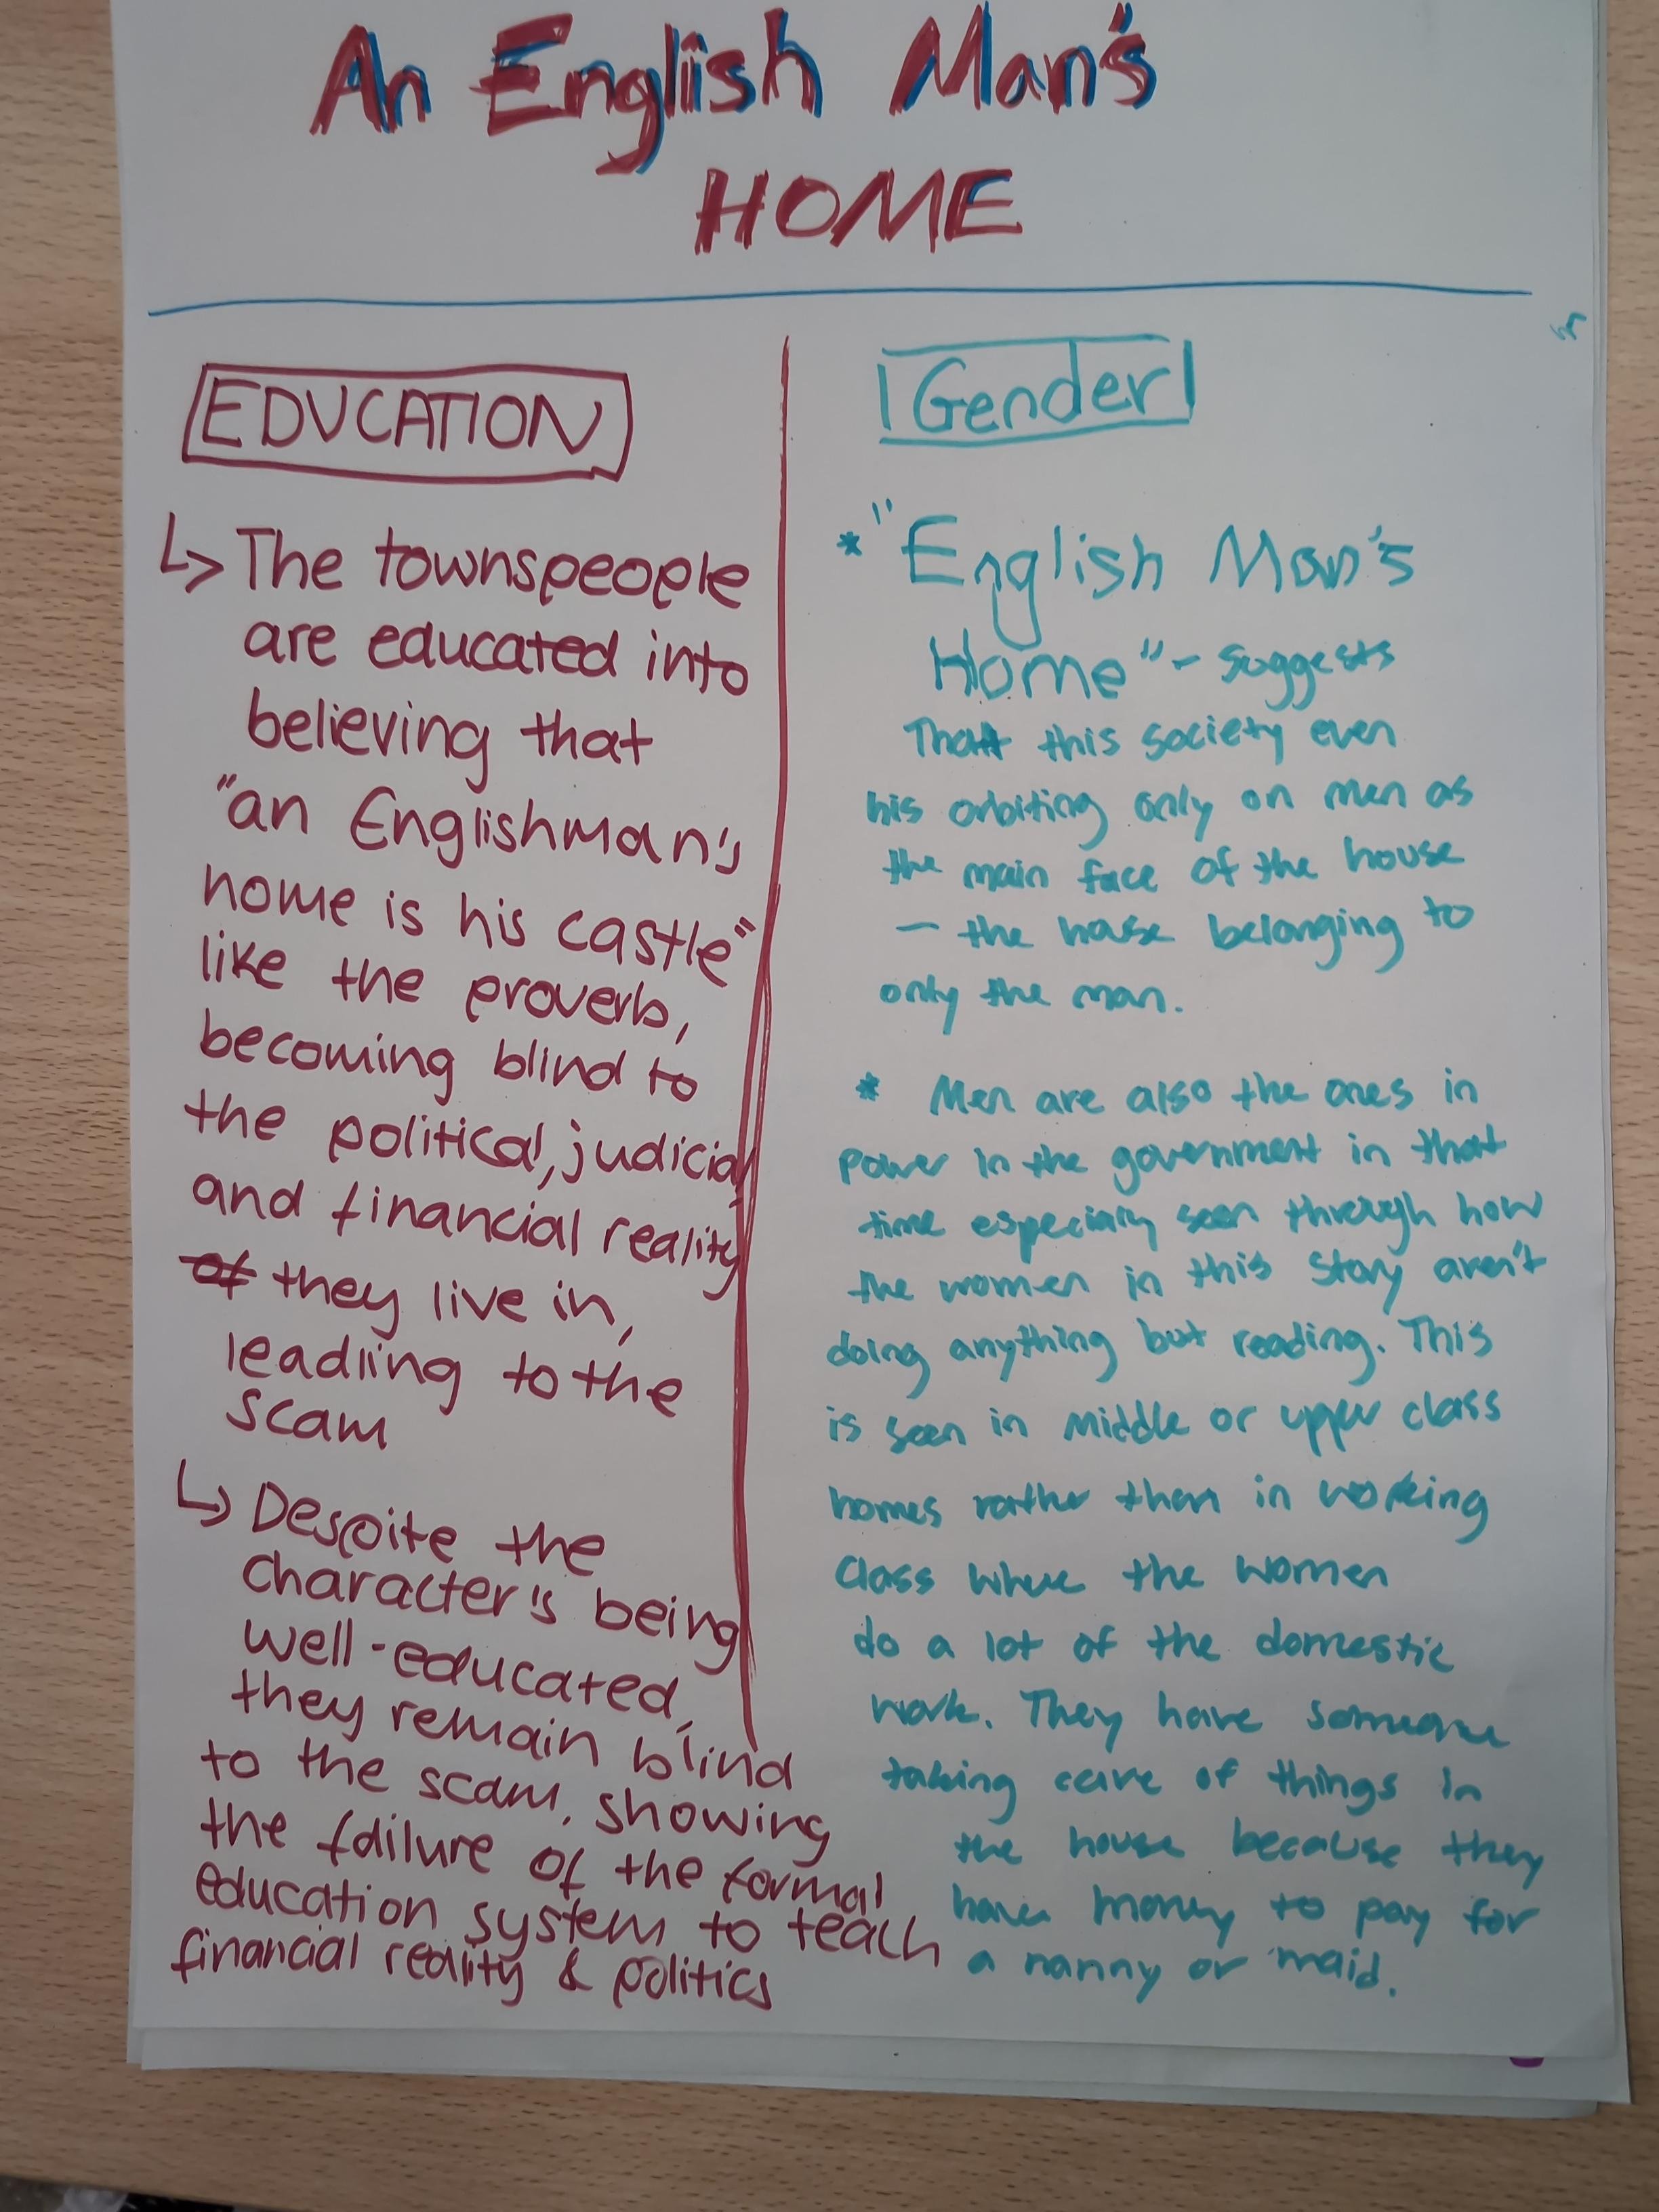 An English Man's
HOME
EDUCATION
↳ The townspeople
are educated into
believing that
"an Englishman's
home is his castle"
like the proverb,
becoming blind to
the political, judicial
and financial reality
of they live in,
leadiing to the
scam
↳ Despite the
character's being
well-educated,
they remain blind
to the scam, showing
the failure of the formal
education system to teach
financial reality & politics
Gender
* "English Man's
Home" - suggests
That this society even
his orbiting only on men as
the main face of the house
— the house belonging to
only the man.
* Men are also the ones in
power in the government in that
time especially seen through how
the women in this story aren't
doing anything but reading. This
is seen in middle or upper class
homes rather than in working
class where the women
do a lot of the domestic
work. They have someone
taking care of things in
the house because they
have money to pay for
a nanny or maid.